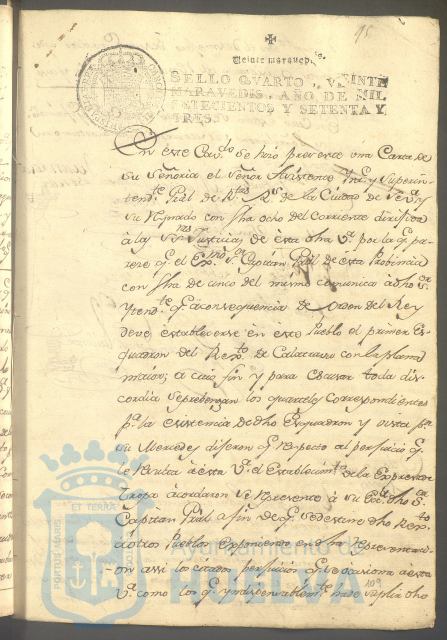 95
Veinte maravedis.
SELLO QVARTO, VEINTE
MARAVEDIS, AÑO DE MIL
SETECIENTOS Y SETENTA Y
TRES.
En este Cav.do se hizo presente una Carta de
su Señoria el Señor Asistente Int.e y Superin-
tend.te Gral de R.tas R.s de la Ciudad de Sev.a y
su Reynado con fha ocho del corriente dirixida
à las Justicias de esta dha V.a por la q.e pa-
rece q.e el Ex.mo S.r Capitan Gral de esta Provincia
con fha de cinco del mismo comunica à dho S.r
Yntend.te q.e à consequencia de Orden del Rey
deve establecerse en este Pueblo el primer Es-
quadron del Rex.to de Calatrava con la plana
maior; a cuio fin y para escusar toda dis-
cordia se prebengan los quarteles correspondientes
p.a la existencia de dho Esquadron y vista p.r
su Mercedes dijeron q.e respecto al perjuicio q.e
le resulta à esta V.a el Establecim.to de la Expresada
tropa acordaron se represente à su Ex.a dho S.r
Capitan Gral a fin de q.e se destine dho Rex.to
à otros Pueblos exponiendo en dha representa-
cion assi los citados perjuicios q.e se ocasiona à esta
V.a como los q.e yndispensablem.te ha de suplir dho
109
ET TERRA
PORTUS MARIS
Ayuntamiento de
HUELVA